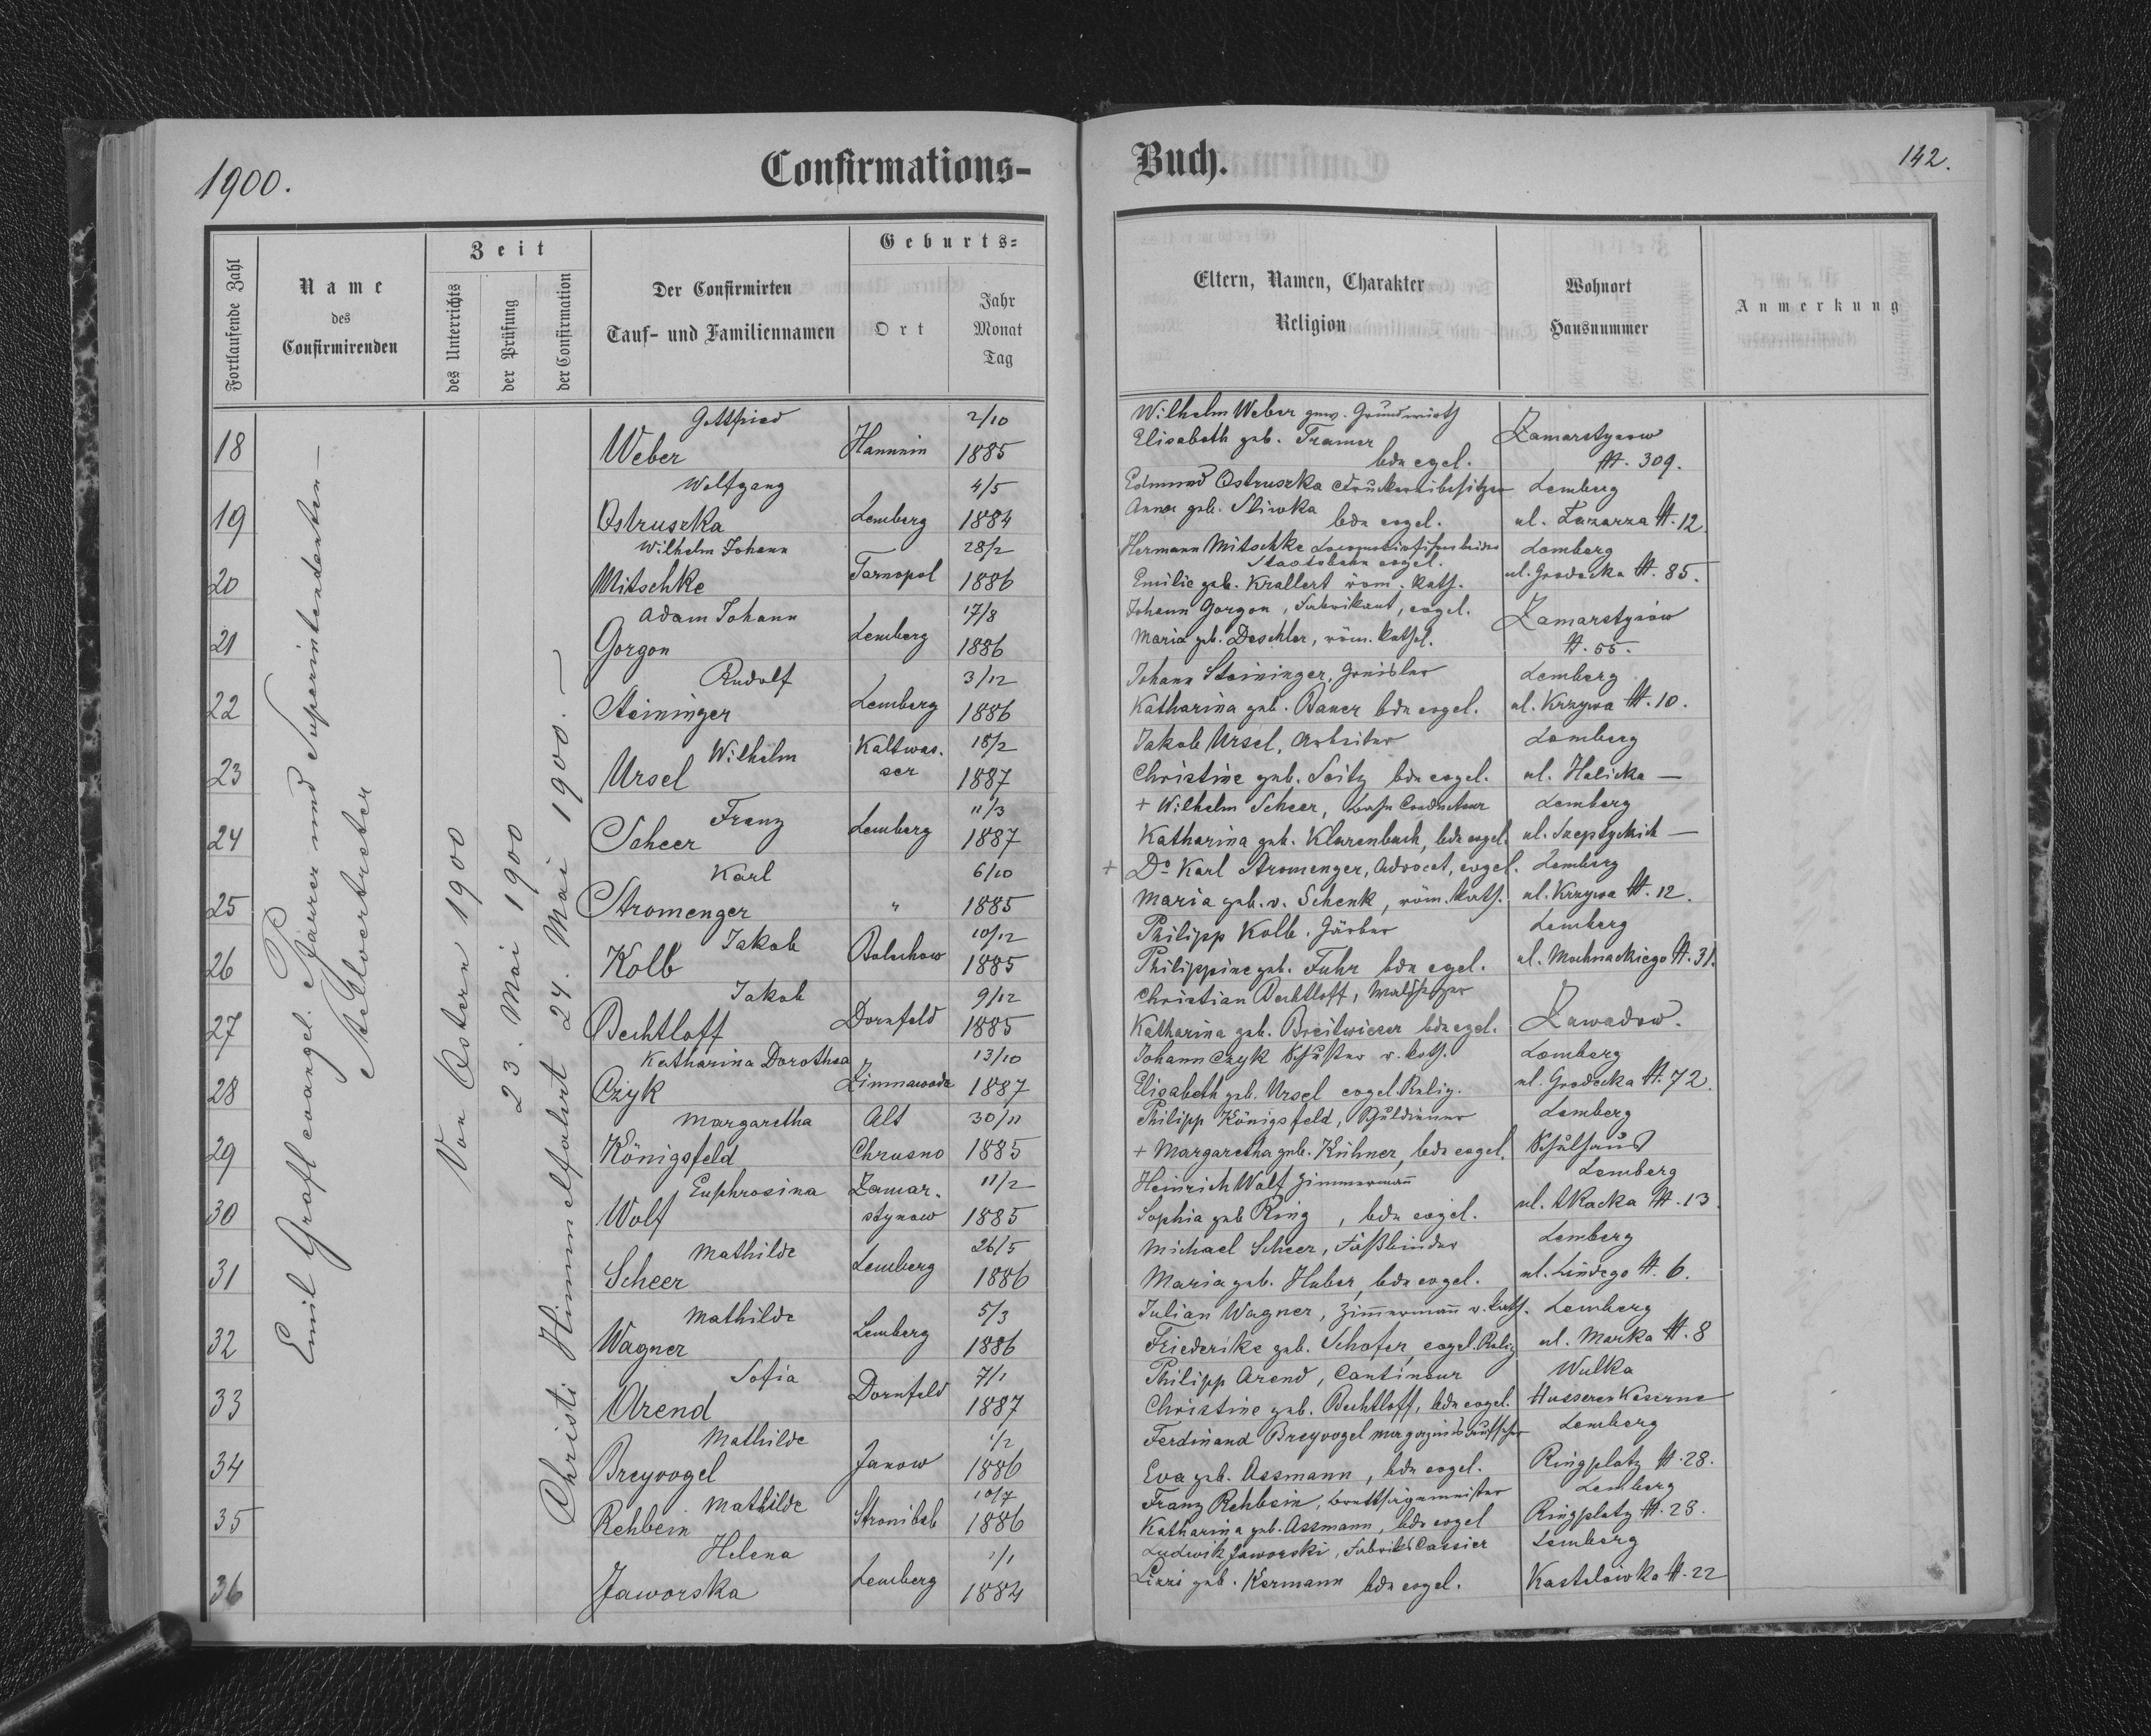 1900.
Confirmations-
Buch.
142.
Fortlaufende Zahl
Name
des
Confirmirenden
Zeit
des Unterrichts
der Prüfung
der Confirmation
Der Confirmirten
Tauf- und Familiennamen
Geburts-
Ort
Jahr
Monat
Tag
Eltern, Namen, Charakter
Religion
Wohnort
Hausnummer
Anmerkung
Emil Grafl evangel. Pfarrer und Superintendenten-
Stellvertreter
Von Ostern 1900
23. Mai 1900
Christi Himmelfahrt 24. Mai 1900.—
Gottfried 2/10
18 Weber 1885
Wilhelm Weber gew. Grundwirth
Elisabeth geb. Tramer
bde egel.
Zamarstynow
№. 309.
Wolfgang 4/5
19 Ostruszka Lemberg 1884
Edmund Ostruszka Druckereibesitzer Lemberg
Anna geb. Sliwka bde evgel. ul. Lazarza №. 12
Wilhelm Johann 28/2
20 Mitschke Tarnopol 1886
Hermann Mitschke Lemberg
Staatsbahn evgel.
Emilie geb. Krallert röm. kath. ul. Grodecka №. 85.
Adam Johann 17/8
21 Gorgon Lemberg 1886
Johann Gorgon, Fabrikant, evgel. Zamarstynów
Maria geb. Deschler, röm. kathol. №. 55.
Rudolf 3/12
22 Steininger Lemberg 1886
Johann Steininger, Greisler Lemberg
Katharina geb. Bauer bde evgel. ul. Krzywa №. 10.
Wilhelm Kaltwas- 18/2
23 Ursel ser 1887
Jakob Ursel, Arbeiter Lemberg
Christine geb. Seitz bde evgel. ul. Halicka —
Franz 11/3
24 Scheer Lemberg 1887
+ Wilhelm Scheer, Bahn Conducteur Lemberg
Katharina geb. Klarenbach, bde evgel. ul. Szeptyckich —
Karl 6/10
25 Stromenger " 1885
+ Dr Karl Stromenger, Advocat, evgel. Lemberg
Maria geb. v. Schenk, röm. kath. ul. Krzywa №. 12.
Jakob 10/12
26 Kolb Bolechow 1885
Philipp Kolb. Gärber Lemberg
Philippine geb. Fuhr bde egel. ul. Mochnackiego №. 31.
Jakob 9/12
27 Bechtloff Dornfeld 1885
Christian Bechtloff, Waldheger
Katharina geb. Breitwieser bde egel. Zawadow.
Katharina Dorothea 13/10
28 Czyk Zimnawoda 1887
Johann Czyk Schuster r. kath. Lemberg
Elisabeth geb. Ursel evgel. Relig. ul. Grodecka №. 72.
Margaretha Alt 30/11
29 Königsfeld Chrusno 1885
Philipp Königsfeld, Schuldiener Lemberg
+ Margaretha geb. Kühner, bde evgel. Schulhaus
Euphrosina Zamar- 11/2
30 Wolf stynow 1885
Heinrich Wolf Zimmermann Lemberg
Sophia geb Ring, bde evgel. ul. Tkacka №. 13
Mathilde 26/5
31 Scheer Lemberg 1886
Michael Scheer, Faßbinder Lemberg
Maria geb. Huber, bde evgel. ul. Lindego №. 6.
Mathilde 5/3
32 Wagner Lemberg 1886
Julian Wagner, Zimmermann r. kath. Lemberg
Friederike geb. Schofer, evgel. Relig ul. Marka №. 8
Sofia 7/1
33 Arend Dornfeld 1887
Philipp Arend, Cantineur Wulka
Christine geb. Bechtloff, bde evgel. Husseren Kaserne
Mathilde 1/2
34 Breyvogel Janow 1886
Ferdinand Breyvogel Lemberg
Eva geb. Assmann, bde evgel. Ringplatz №. 28.
Mathilde 10/7
35 Rehbein Stronibab 1886
Franz Rehbein, Lemberg
Katharina geb. Assmann, bde evgel Ringplatz №. 28.
Helena 1/1
36 Jaworska Lemberg 1884
Ludwik Jaworski, Fabriks Cassier Lemberg
geb. Kermann bde evgel. Kastelówka №. 22